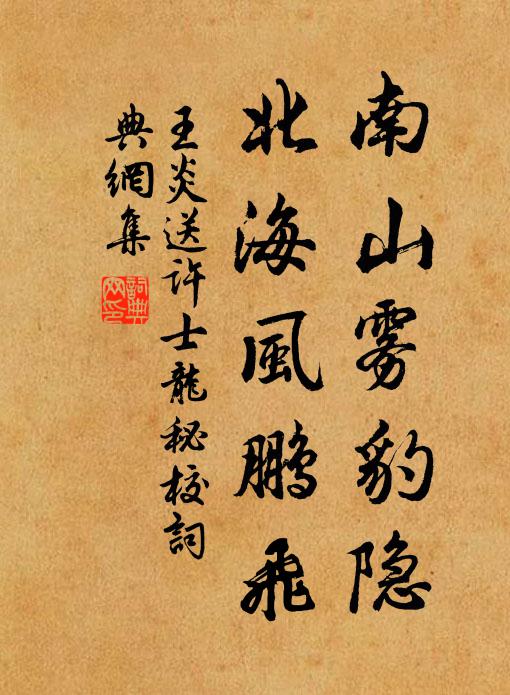 南山雾豹隐
北海風鹏飛
王炎送许士龍秘校詞
典網集
詞典网印